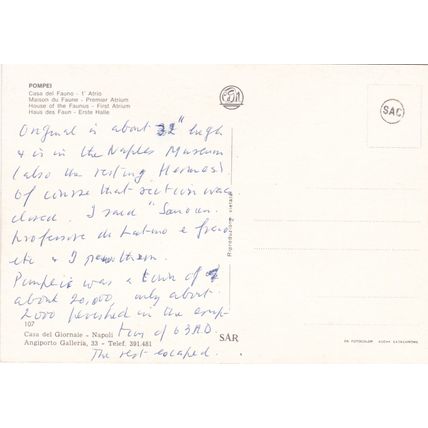 POMPEI
Casa del Fauno - 1° Atrio
Maison du Faune - Premier Atrium
House of the Faunus - First Atrium
Haus des Faun - Erste Halle
SAC
Original is about 32" high
& is in the Naples Museum
(also the resting Hermes).
Of course that section was
closed. I said "Sono un
professore di Latino e
etc & I
Pompeii was a town of
about 20,000, only about
2000 perished in the erup-
tion of 63 A.D.
The rest escaped.
Riproduzione vietata
107
Casa del Giornale - Napoli
Angiporto Galleria, 33 - Telef. 391.481
SAR